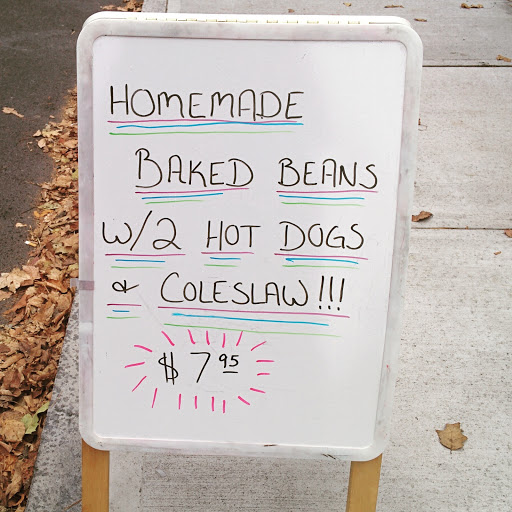 HOMEMADE
BAKED BEANS
W/2 HOT DOGS
& COLESLAW!!!
$7.95